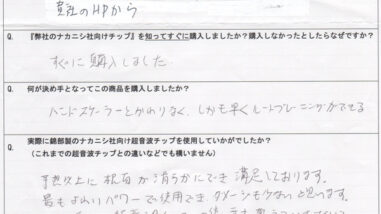 貴社のHPから
Q. 『弊社のナカニシ社向けチップ』を知ってすぐに購入しましたか？購入しなかったとしたらなぜですか？
すぐに購入しました
Q. 何が決め手となってこの商品を購入しましたか？
ハンドスケーラーとかわりなく、しかも早くルートプレーニングができる
Q. 実際に錦部製のナカニシ社向け超音波チップを使用していかがでしたか？
（これまでの超音波チップとの違いなどでも構いません）
予想以上に根面が滑らかにでき満足しております。
最もよわいパワーで使用でき、ダメージも少ないと思います。